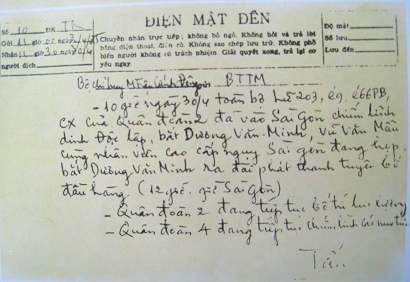 ĐIỆN MẬT ĐẾN
Số 10 TK
Gửi 11 giờ
Nhận 11 giờ 30
người dịch
Chuyển nhận trực tiếp, không bỏ ngỏ. Không hỏi và trả lời
bằng điện thoại, điện rõ. Không sao chép lưu trữ. Không phổ
biến người không có trách nhiệm. Giải quyết xong, trả lại cơ
yếu ngay
Độ mật
Số lưu
Lưu đến
BTTM
- 10 giờ ngày 30/4 toàn bộ Lữ 203, e9, e66PB,
cx của Quân đoàn 2 đã vào Sài Gòn chiếm lĩnh
dinh Độc lập, bắt Dương Văn Minh, Vũ Văn Mẫu
cùng nhân viên cao cấp ngụy Sài gòn đang họp.
bắt Dương Văn Minh ra đài phát thanh tuyên bố
đầu hàng. (12 giờ giờ Sài Gòn)
- Quân đoàn 2 đang tiếp tục
- Quân đoàn 4 đang tiếp tục chiếm lĩnh các mục tiêu
Tấn